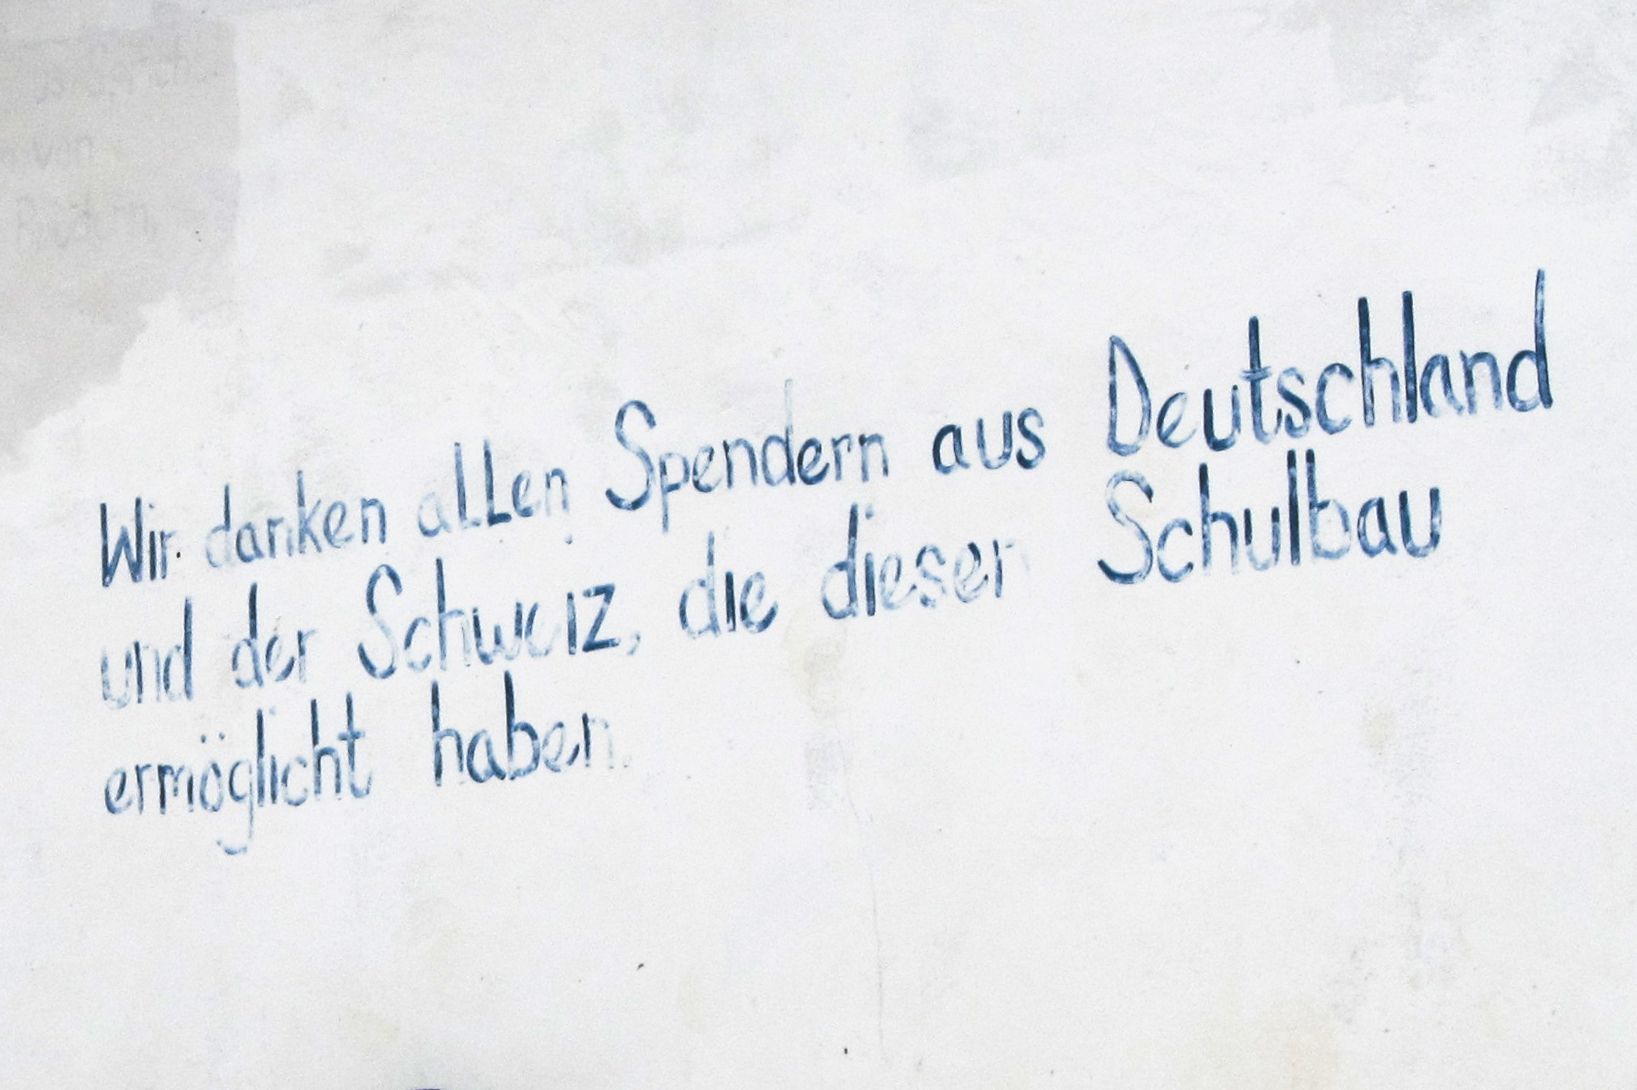 von
Wir danken allen Spendern aus Deutschland
und der Schweiz, die diesen Schulbau
ermöglicht haben.